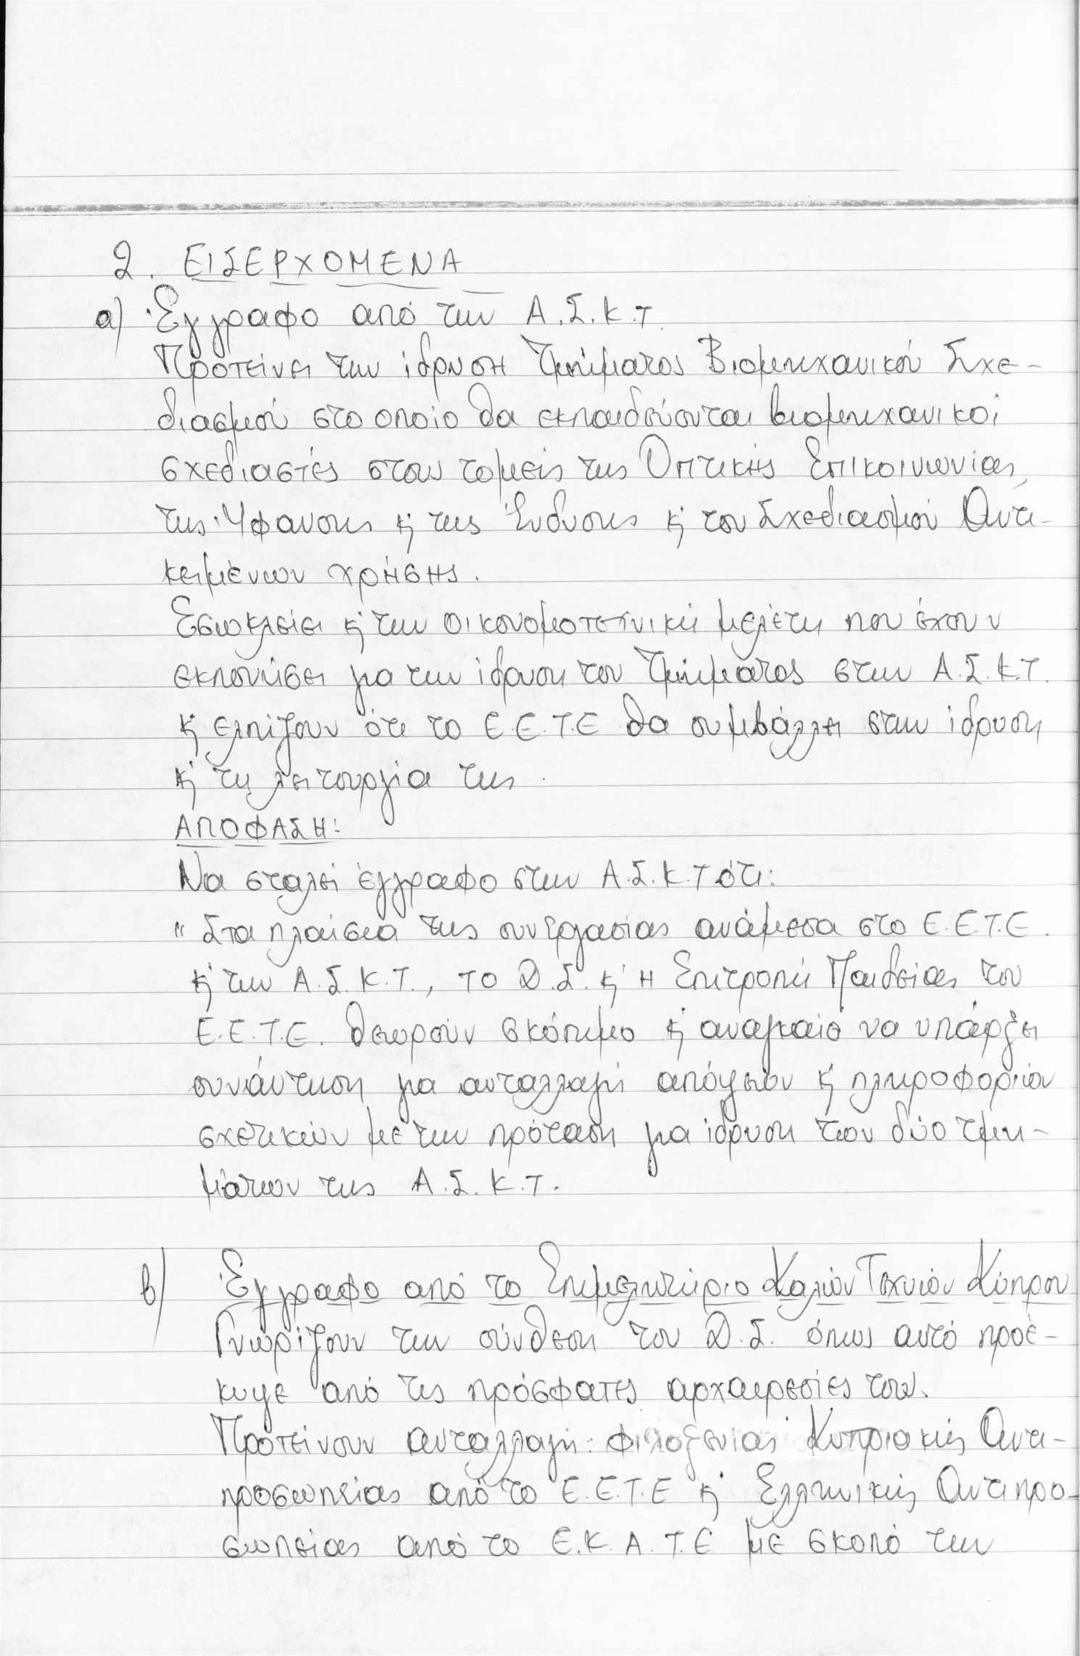 2. ΕΙΣΕΡΧΟΜΕΝΑ
α) Έγγραφο από την Α.Σ.Κ.Τ.
Προτείνει την ίδρυση Τμήματος Βιομηχανικού Σχε-
διασμού στο οποίο θα εκπαιδεύονται βιομηχανικοί
σχεδιαστές στους τομείς της Οπτικής Επικοινωνίας,
της Ύφανσης κ' της Ένδυσης κ' του Σχεδιασμού Αντι-
κειμένων χρήσης.
Εσωκλείει κ' την οικονομοτεχνική μελέτη που έχουν
εκπονήσει για την ίδρυση του Τμήματος στην Α.Σ.Κ.Τ.
κ' ελπίζουν ότι το Ε.Ε.Τ.Ε θα συμβάλλει στην ίδρυση
κ' τη λειτουργία της.
ΑΠΟΦΑΣΗ:
Να σταλεί έγγραφο στην Α.Σ.Κ.Τ ότι:
" Στα πλαίσια της συνεργασίας ανάμεσα στο Ε.Ε.Τ.Ε.
κ' την Α.Σ.Κ.Τ., το Δ.Σ. κ' η Επιτροπή Παιδείας του
Ε.Ε.Τ.Ε. θεωρούν σκόπιμο κ' αναγκαίο να υπάρξει
συνάντηση για ανταλλαγή απόψεων κ' πληροφοριών
σχετικών με την πρόταση για ίδρυση των δύο τμη-
μάτων της Α.Σ.Κ.Τ.
β) Έγγραφο από το Επιμελητήριο Καλών Τεχνών Κύπρου
Γνωρίζουν την σύνθεση του Δ.Σ. όπως αυτό προέ-
κυψε από τις πρόσφατες αρχαιρεσίες του.
Προτείνουν ανταλλαγή φιλοξενίας Κυπριακής Αντι-
προσωπείας από το Ε.Ε.Τ.Ε κ' Ελληνικής Αντιπρο-
σωπείας από το Ε.Κ.Α.Τ.Ε με σκοπό την